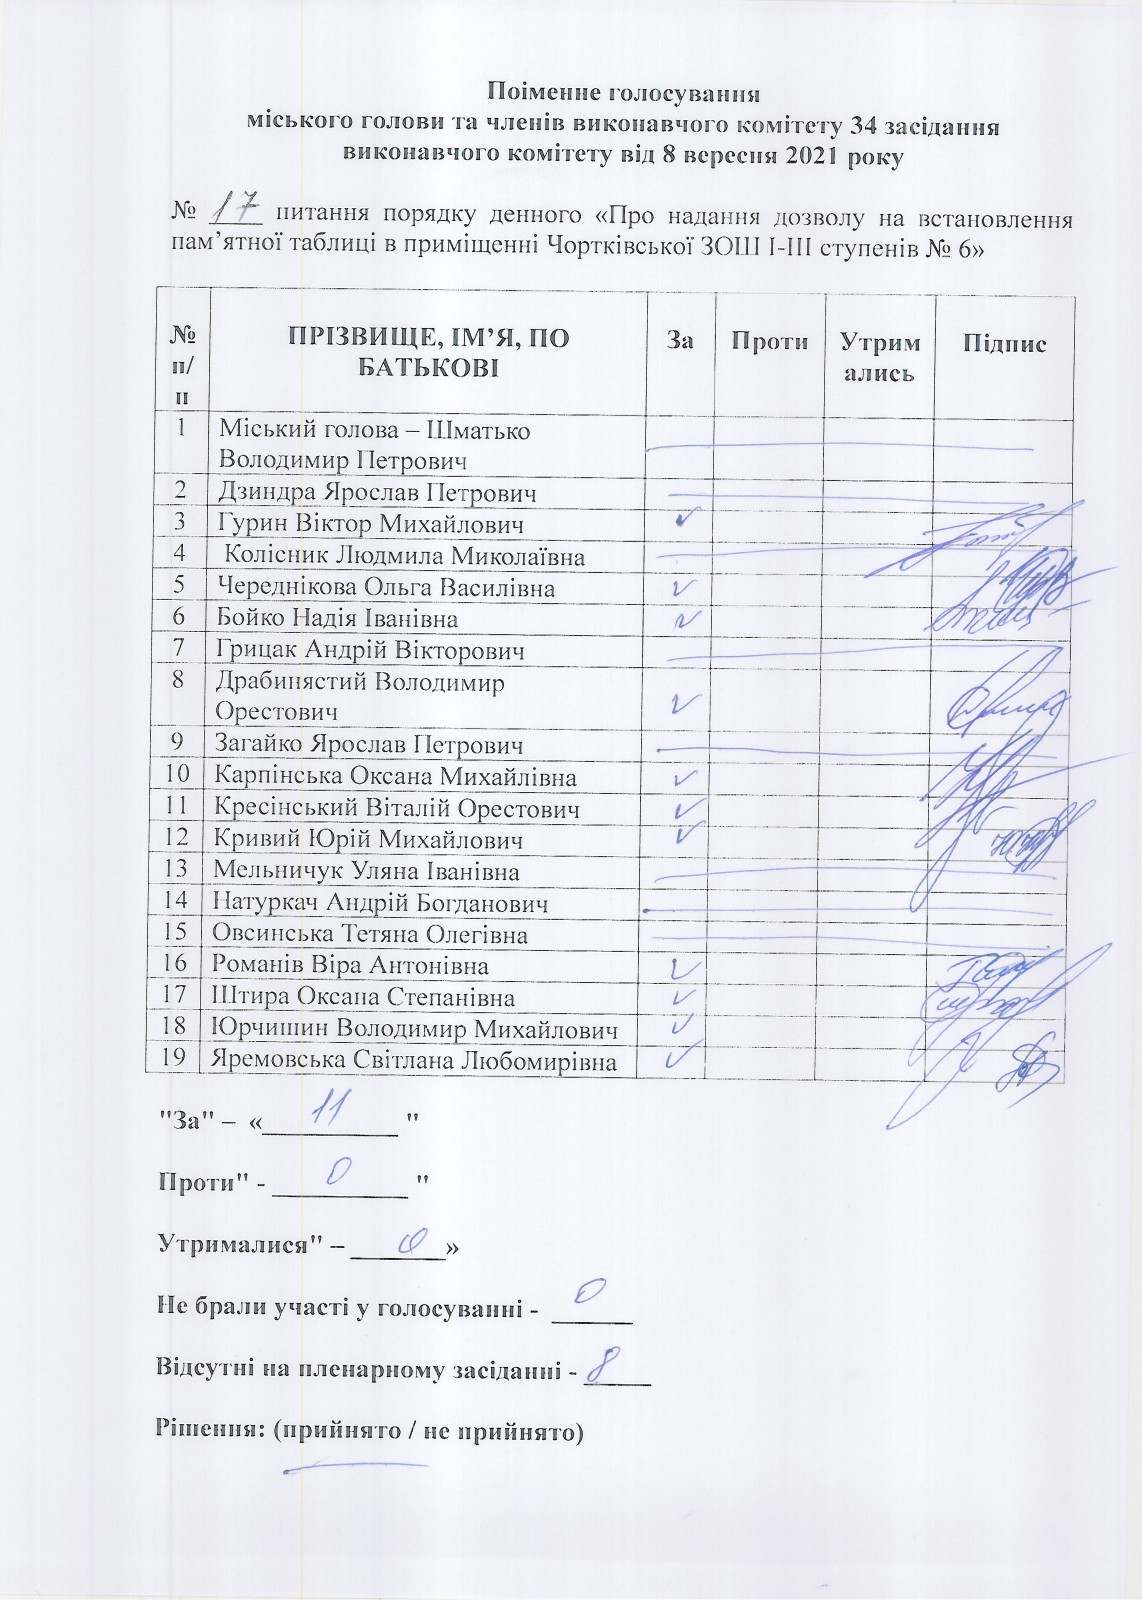 Поіменне голосування
міського голови та членів виконавчого комітету 34 засідання
виконавчого комітету від 8 вересня 2021 року
№ 17 питання порядку денного «Про надання дозволу на встановлення
пам’ятної таблиці в приміщенні Чортківської ЗОШ І-ІІІ ступенів № 6»
№ п/п ПРІЗВИЩЕ, ІМ’Я, ПО БАТЬКОВІ За Проти Утримались Підпис
1 Міський голова – Шматько
Володимир Петрович
2 Дзиндра Ярослав Петрович
3 Гурин Віктор Михайлович ✓
4 Колісник Людмила Миколаївна
5 Череднікова Ольга Василівна ✓
6 Бойко Надія Іванівна ✓
7 Грицак Андрій Вікторович
8 Драбинястий Володимир
Орестович ✓
9 Загайко Ярослав Петрович
10 Карпінська Оксана Михайлівна ✓
11 Кресінський Віталій Орестович ✓
12 Кривий Юрій Михайлович ✓
13 Мельничук Уляна Іванівна
14 Натуркач Андрій Богданович
15 Овсинська Тетяна Олегівна
16 Романів Віра Антонівна ✓
17 Штира Оксана Степанівна ✓
18 Юрчишин Володимир Михайлович ✓
19 Яремовська Світлана Любомирівна ✓
"За" – «11 "
Проти" - 0 "
Утрималися" – 0»
Не брали участі у голосуванні - 0
Відсутні на пленарному засіданні - 8
Рішення: (прийнято / не прийнято)